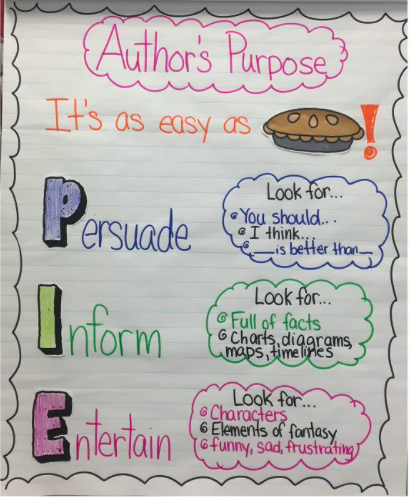 Author's Purpose
It's as easy as !
Persuade
Look for...
You should...
I think...
__is better than__
Inform
Look for...
Full of facts
Charts, diagrams,
maps, timelines
Entertain
Look for...
Characters
Elements of fantasy
funny, sad, frustrating